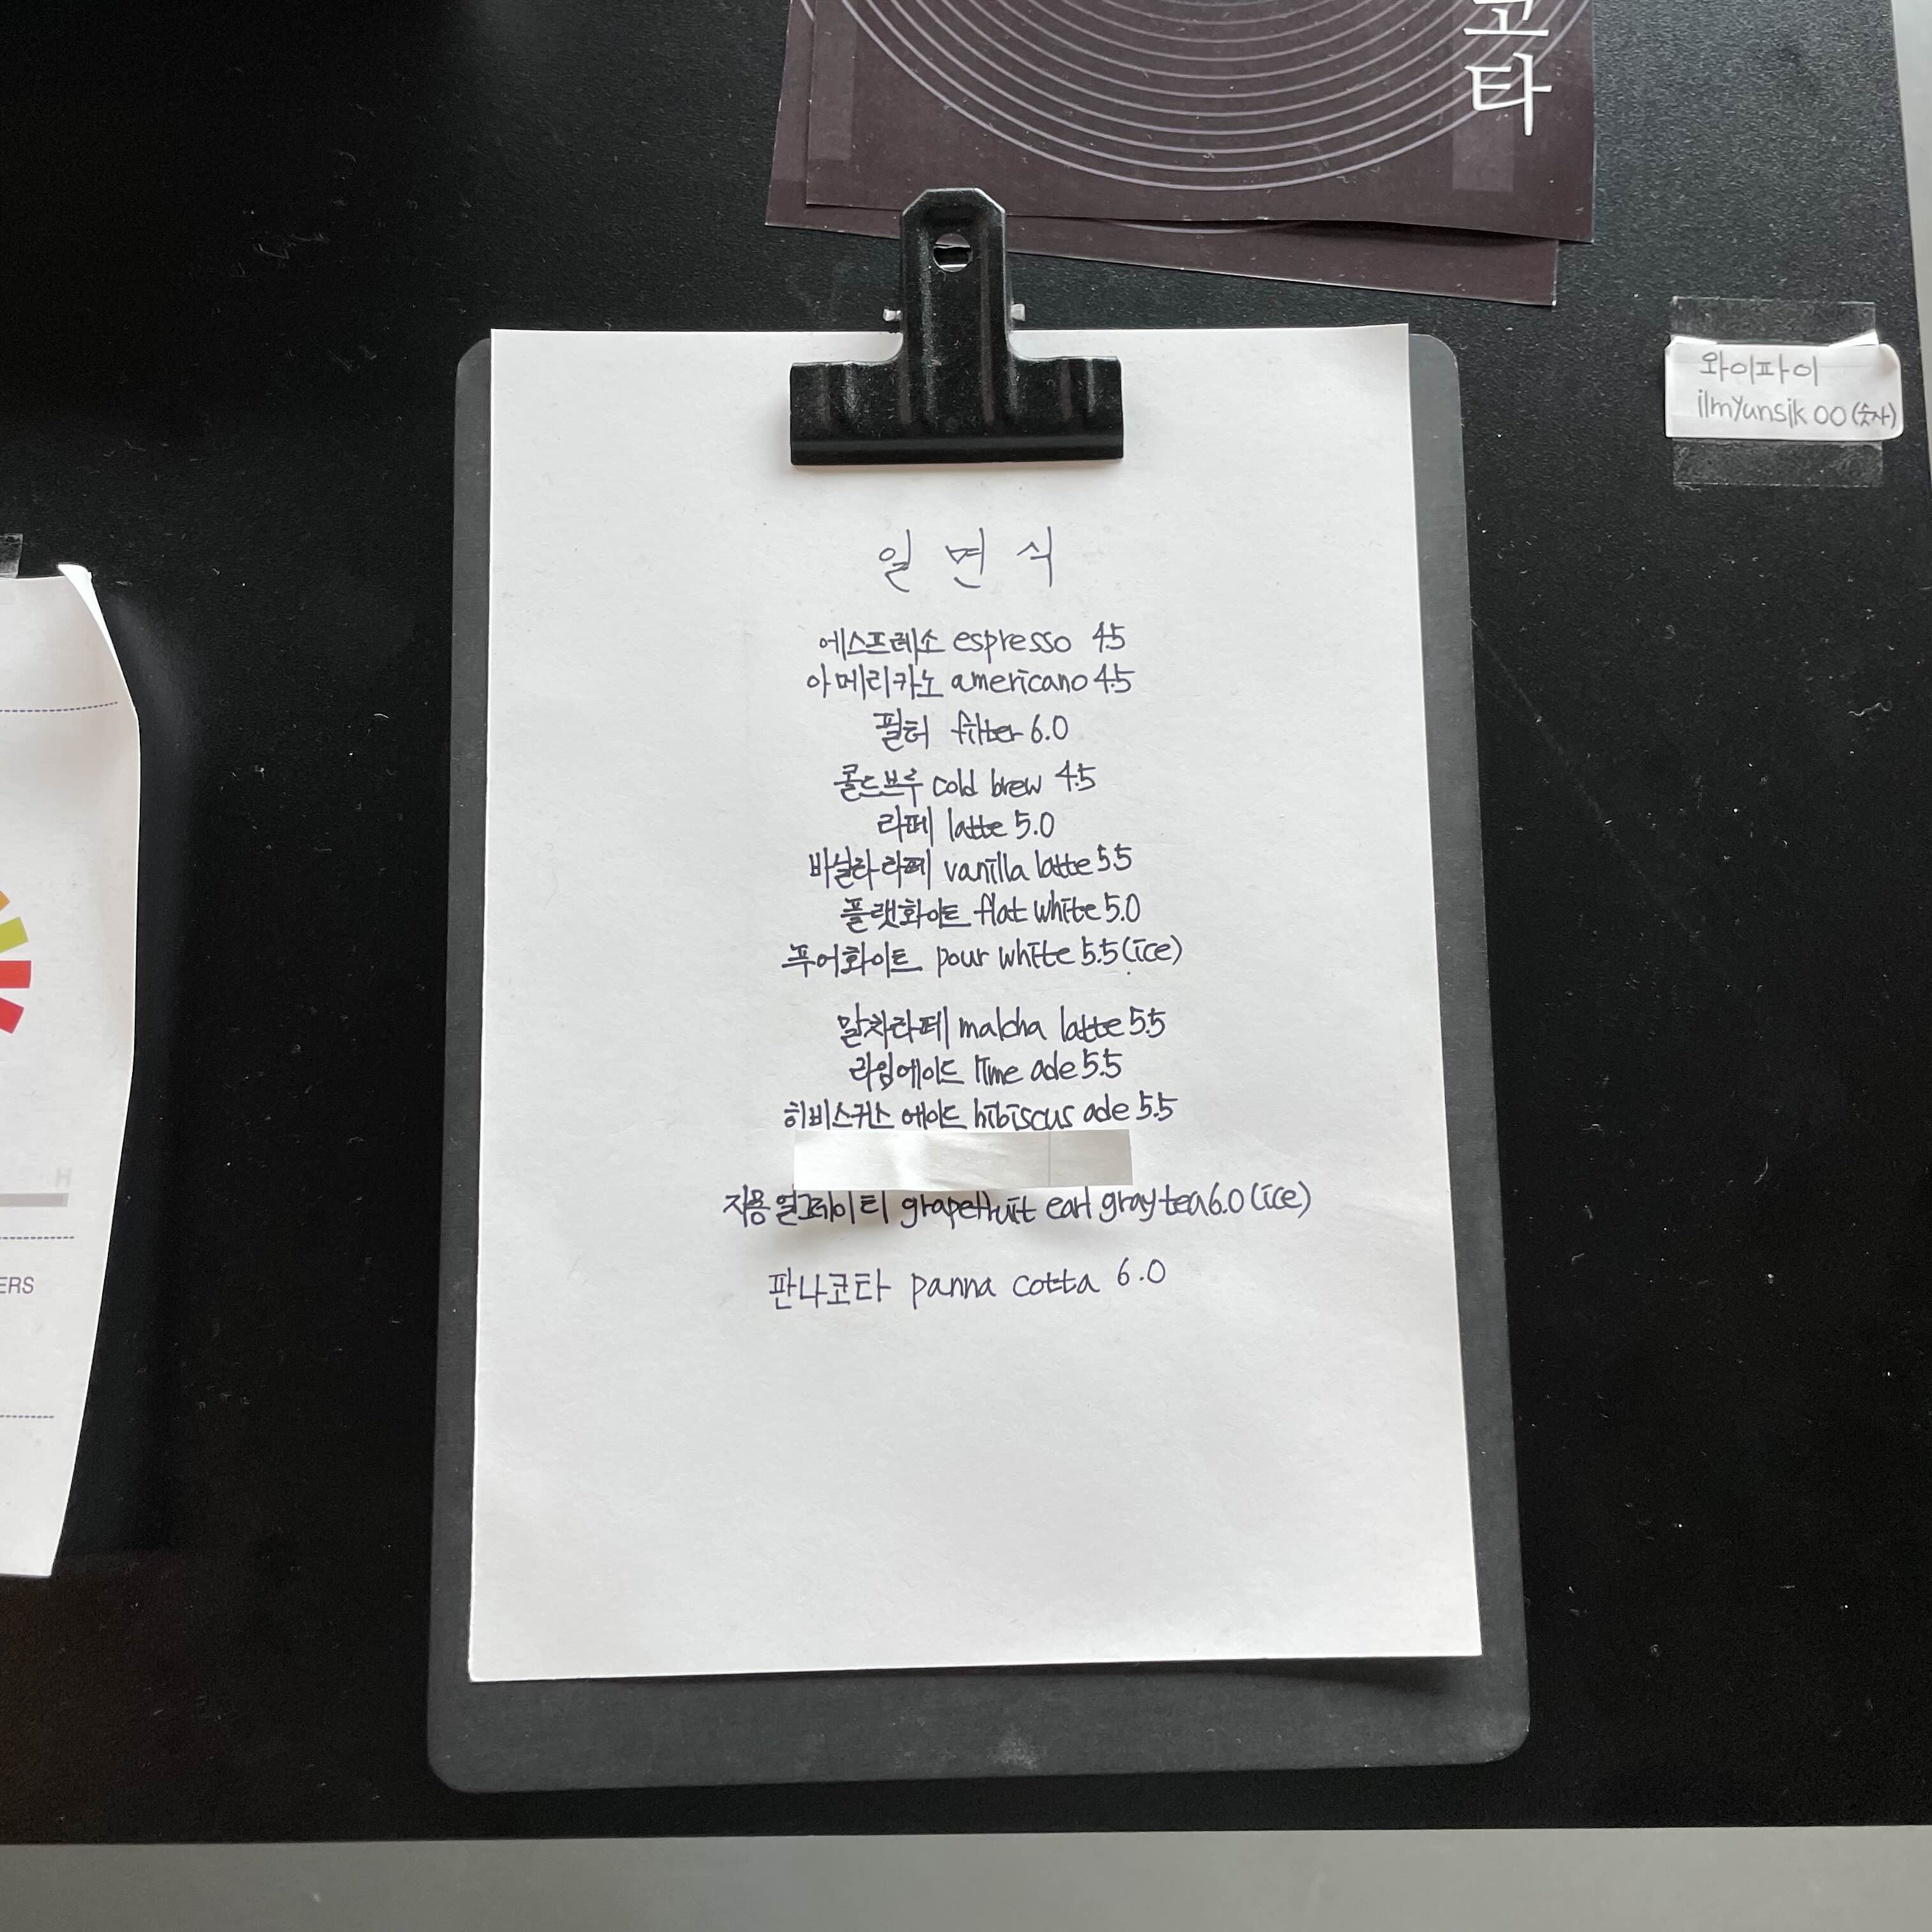 코타
와이파이
ilmyunsik00(숫자)
일면식
에스프레소 espresso 4.5
아메리카노 americano 4.5
필터 filter 6.0
콜드브루 cold brew 4.5
라떼 latte 5.0
바닐라라떼 vanilla latte 5.5
플랫화이트 flat white 5.0
푸어화이트 pour white 5.5 (ice)
말차라떼 matcha latte 5.5
라임에이드 lime ade 5.5
히비스커스 에이드 hibiscus ade 5.5
자몽얼그레이티 grapefruit earl gray tea 6.0 (ice)
판나코타 panna cotta 6.0
H
ERS